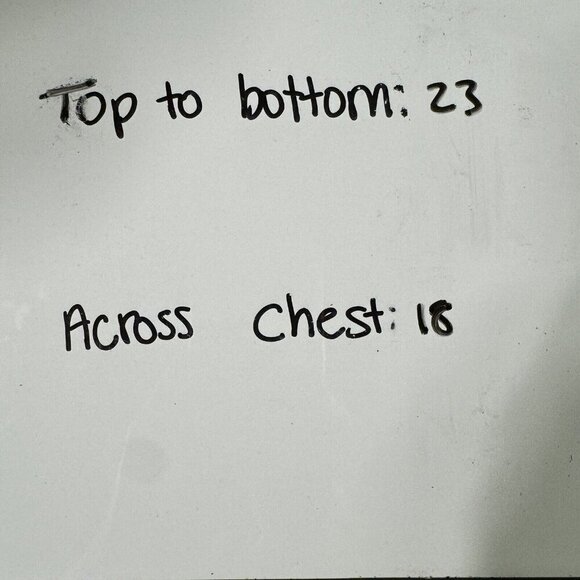 Top to bottom: 23
Across Chest: 18